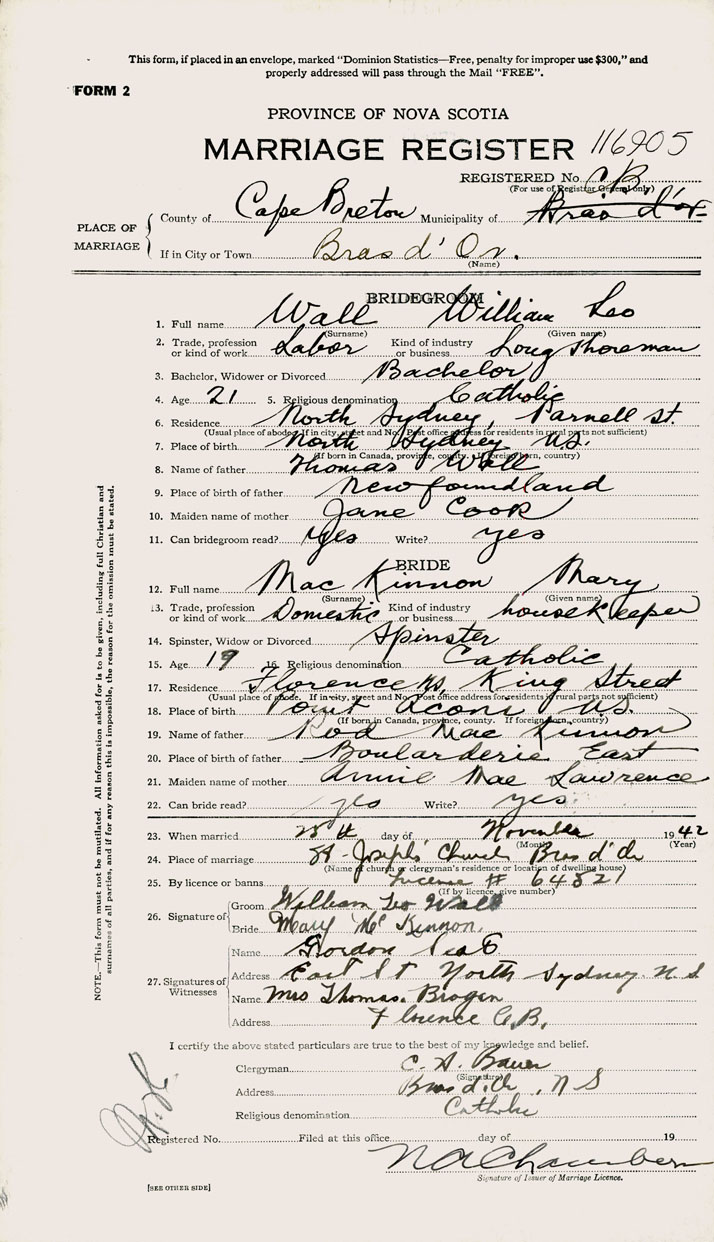 This form, if placed in an envelope, marked "Dominion Statistics—Free, penalty for improper use $300," and
properly addressed will pass through the Mail "FREE".
FORM 2
PROVINCE OF NOVA SCOTIA
MARRIAGE REGISTER 116905
REGISTERED No. C.B.
(For use of Registrar General only)
PLACE OF MARRIAGE
County of Cape Breton Municipality of Bras d'or
If in City or Town Bras d'Or.
(Name)
BRIDEGROOM
1. Full name Wall William Leo
(Surname) (Given name)
2. Trade, profession or kind of work Labor Kind of industry or business Longshoreman
3. Bachelor, Widower or Divorced Bachelor
4. Age 21 5. Religious denomination Catholic
6. Residence North Sydney, Parnell st.
(Usual place of abode. If in city, street and No. Post office address for residents in rural parts not sufficient)
7. Place of birth North Sydney N.S.
(If born in Canada, province, county. If foreign born, country)
8. Name of father Thomas Wall
9. Place of birth of father Newfoundland
10. Maiden name of mother Jane Cook
11. Can bridegroom read? Yes Write? yes
BRIDE
12. Full name Mac Kinnon Mary
(Surname) (Given name)
13. Trade, profession or kind of work Domestic Kind of industry or business housekeeper
14. Spinster, Widow or Divorced Spinster
15. Age 19 16. Religious denomination Catholic
17. Residence Florence NS, King Street
(Usual place of abode. If in city, street and No. Post office address for residents in rural parts not sufficient)
18. Place of birth Point Aconi N.S.
(If born in Canada, province, county. If foreign born, country)
19. Name of father Rod Mac Kinnon
20. Place of birth of father Boularderie East
21. Maiden name of mother Annie Mae Lawrence
22. Can bride read? yes Write? yes.
23. When married day of November 1942
(Month) (Year)
24. Place of marriage St-Joseph's Church Bras d'Or
(Name of church or clergyman's residence or location of dwelling house)
25. By licence or banns License # 64821
(If by licence, give number)
26. Signature of
Groom William Leo Wall
Bride Mary Mc Kinnon.
27. Signatures of Witnesses
Name Gordon
Address East St North Sydney N S
Name Mrs Thomas. Brogan
Address Florence C.B.
I certify the above stated particulars are true to the best of my knowledge and belief.
Clergyman C. A.
(Signature)
Address Bras d'Or, N S
Religious denomination Catholic
Registered No. Filed at this office day of 19
N A Chambers
Signature of Issuer of Marriage Licence.
[SEE OTHER SIDE]
NOTE.—This form must not be mutilated. All information asked for is to be given, including full Christian and
surnames of all parties, and if for any reason this is impossible, the reason for the omission must be stated.